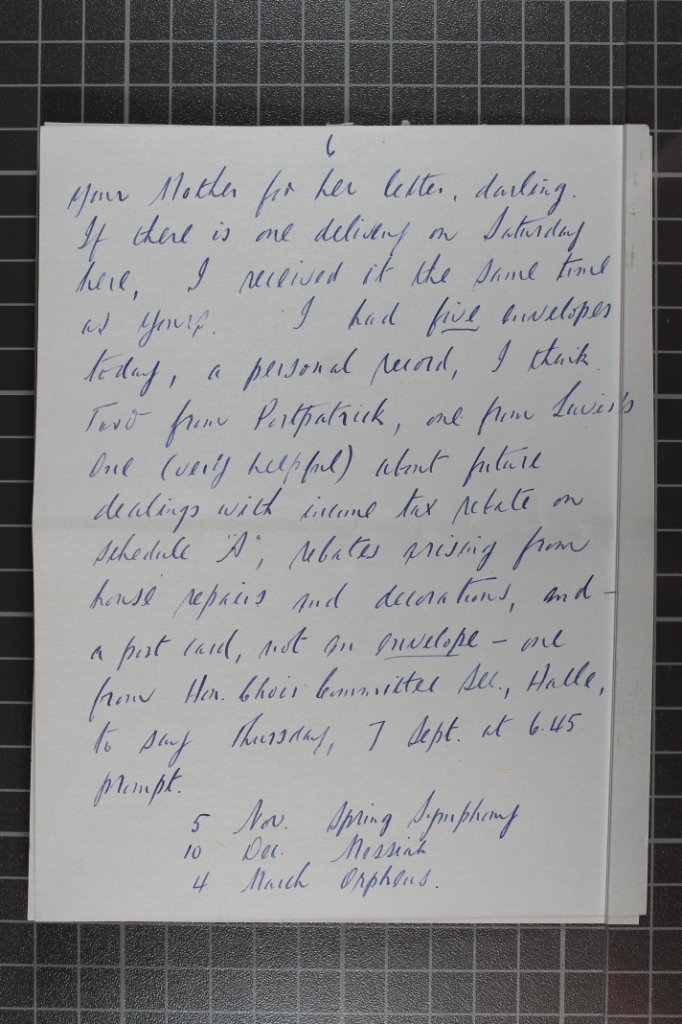 6
your Mother for her letter, darling.
If there is one delivery on Saturday
here, I received it the same time
as yours. I had five envelopes
today, a personal record, I think.
Two from Portpatrick, one from Lewis's
One (very helpful) about future
dealings with income tax rebate on
schedule "A", rebates arising from
house repairs and decorations, and -
a post card, not an envelope - one
from Hon. Choir Committee Sec., Halle,
to say Thursday, 7 Sept. at 6.45
prompt.
5 Nov. Spring Symphony
10 Dec. Messiah
4 March Orpheus.